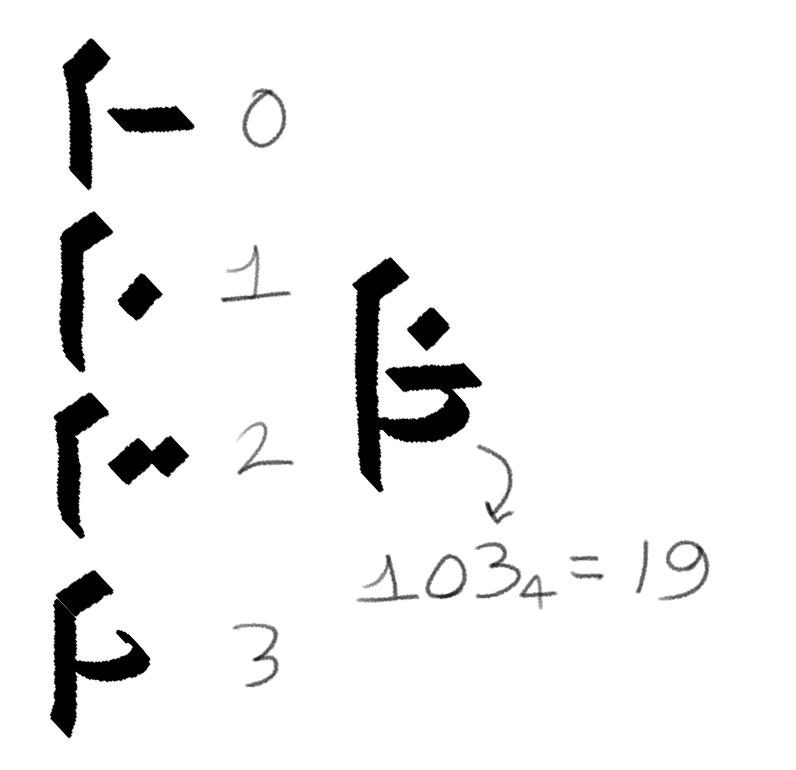 0
1
2
3
103₄ = 19